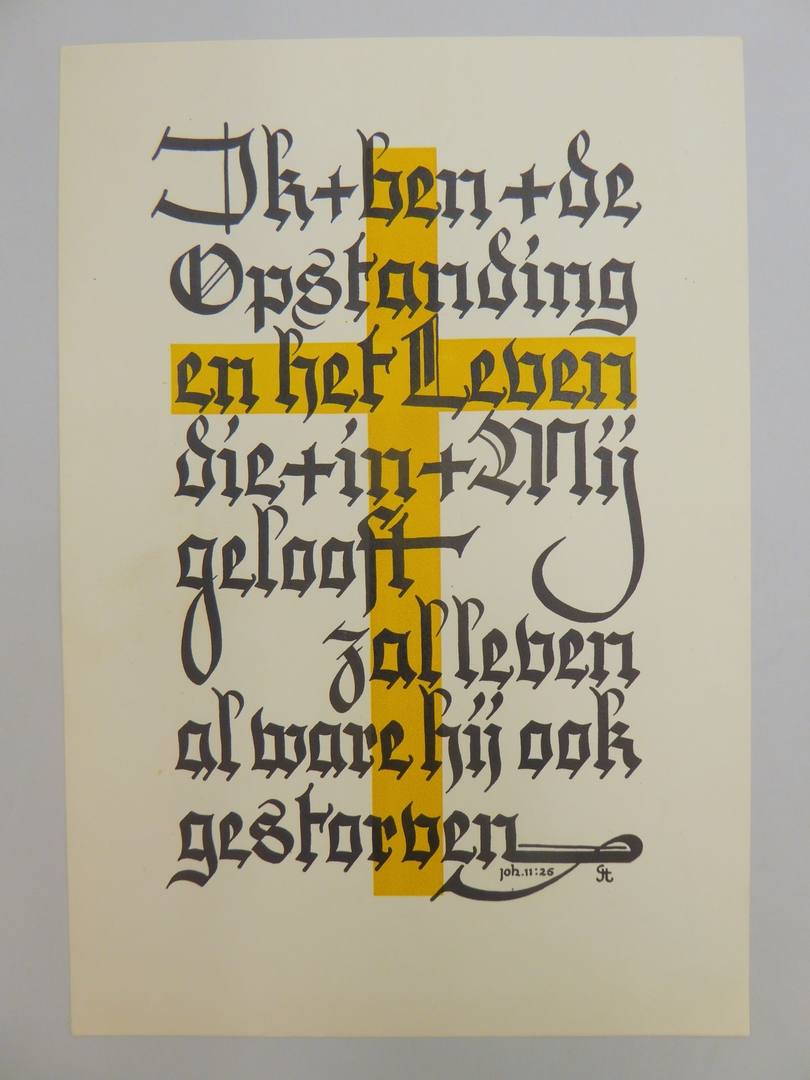 Ik + ben + de
Opstanding
en het Leven
die + in + Mij
gelooft
zal leven
al ware hij ook
gestorven
joh. 11:26